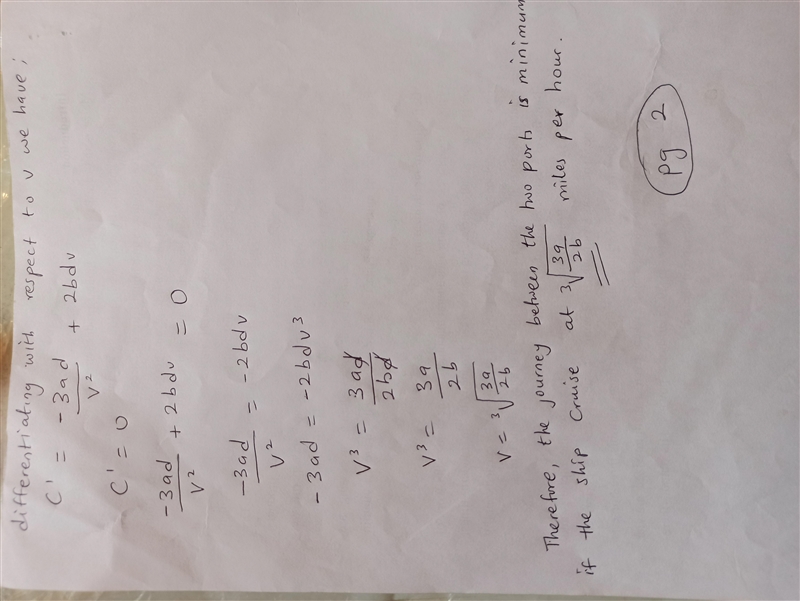 differentiating with respect to v we have;
C' = -3ad/v² + 2bdv
C' = 0
-3ad/v² + 2bdv = 0
-3ad/v² = -2bdv
-3ad = -2bdv³
v³ = 3ad/2bd
v³ = 3a/2b
v = ³√(3a/2b)
Therefore, the journey between the two ports is minimum
if the ship cruise at ³√(3a/2b) miles per hour.
pg 2